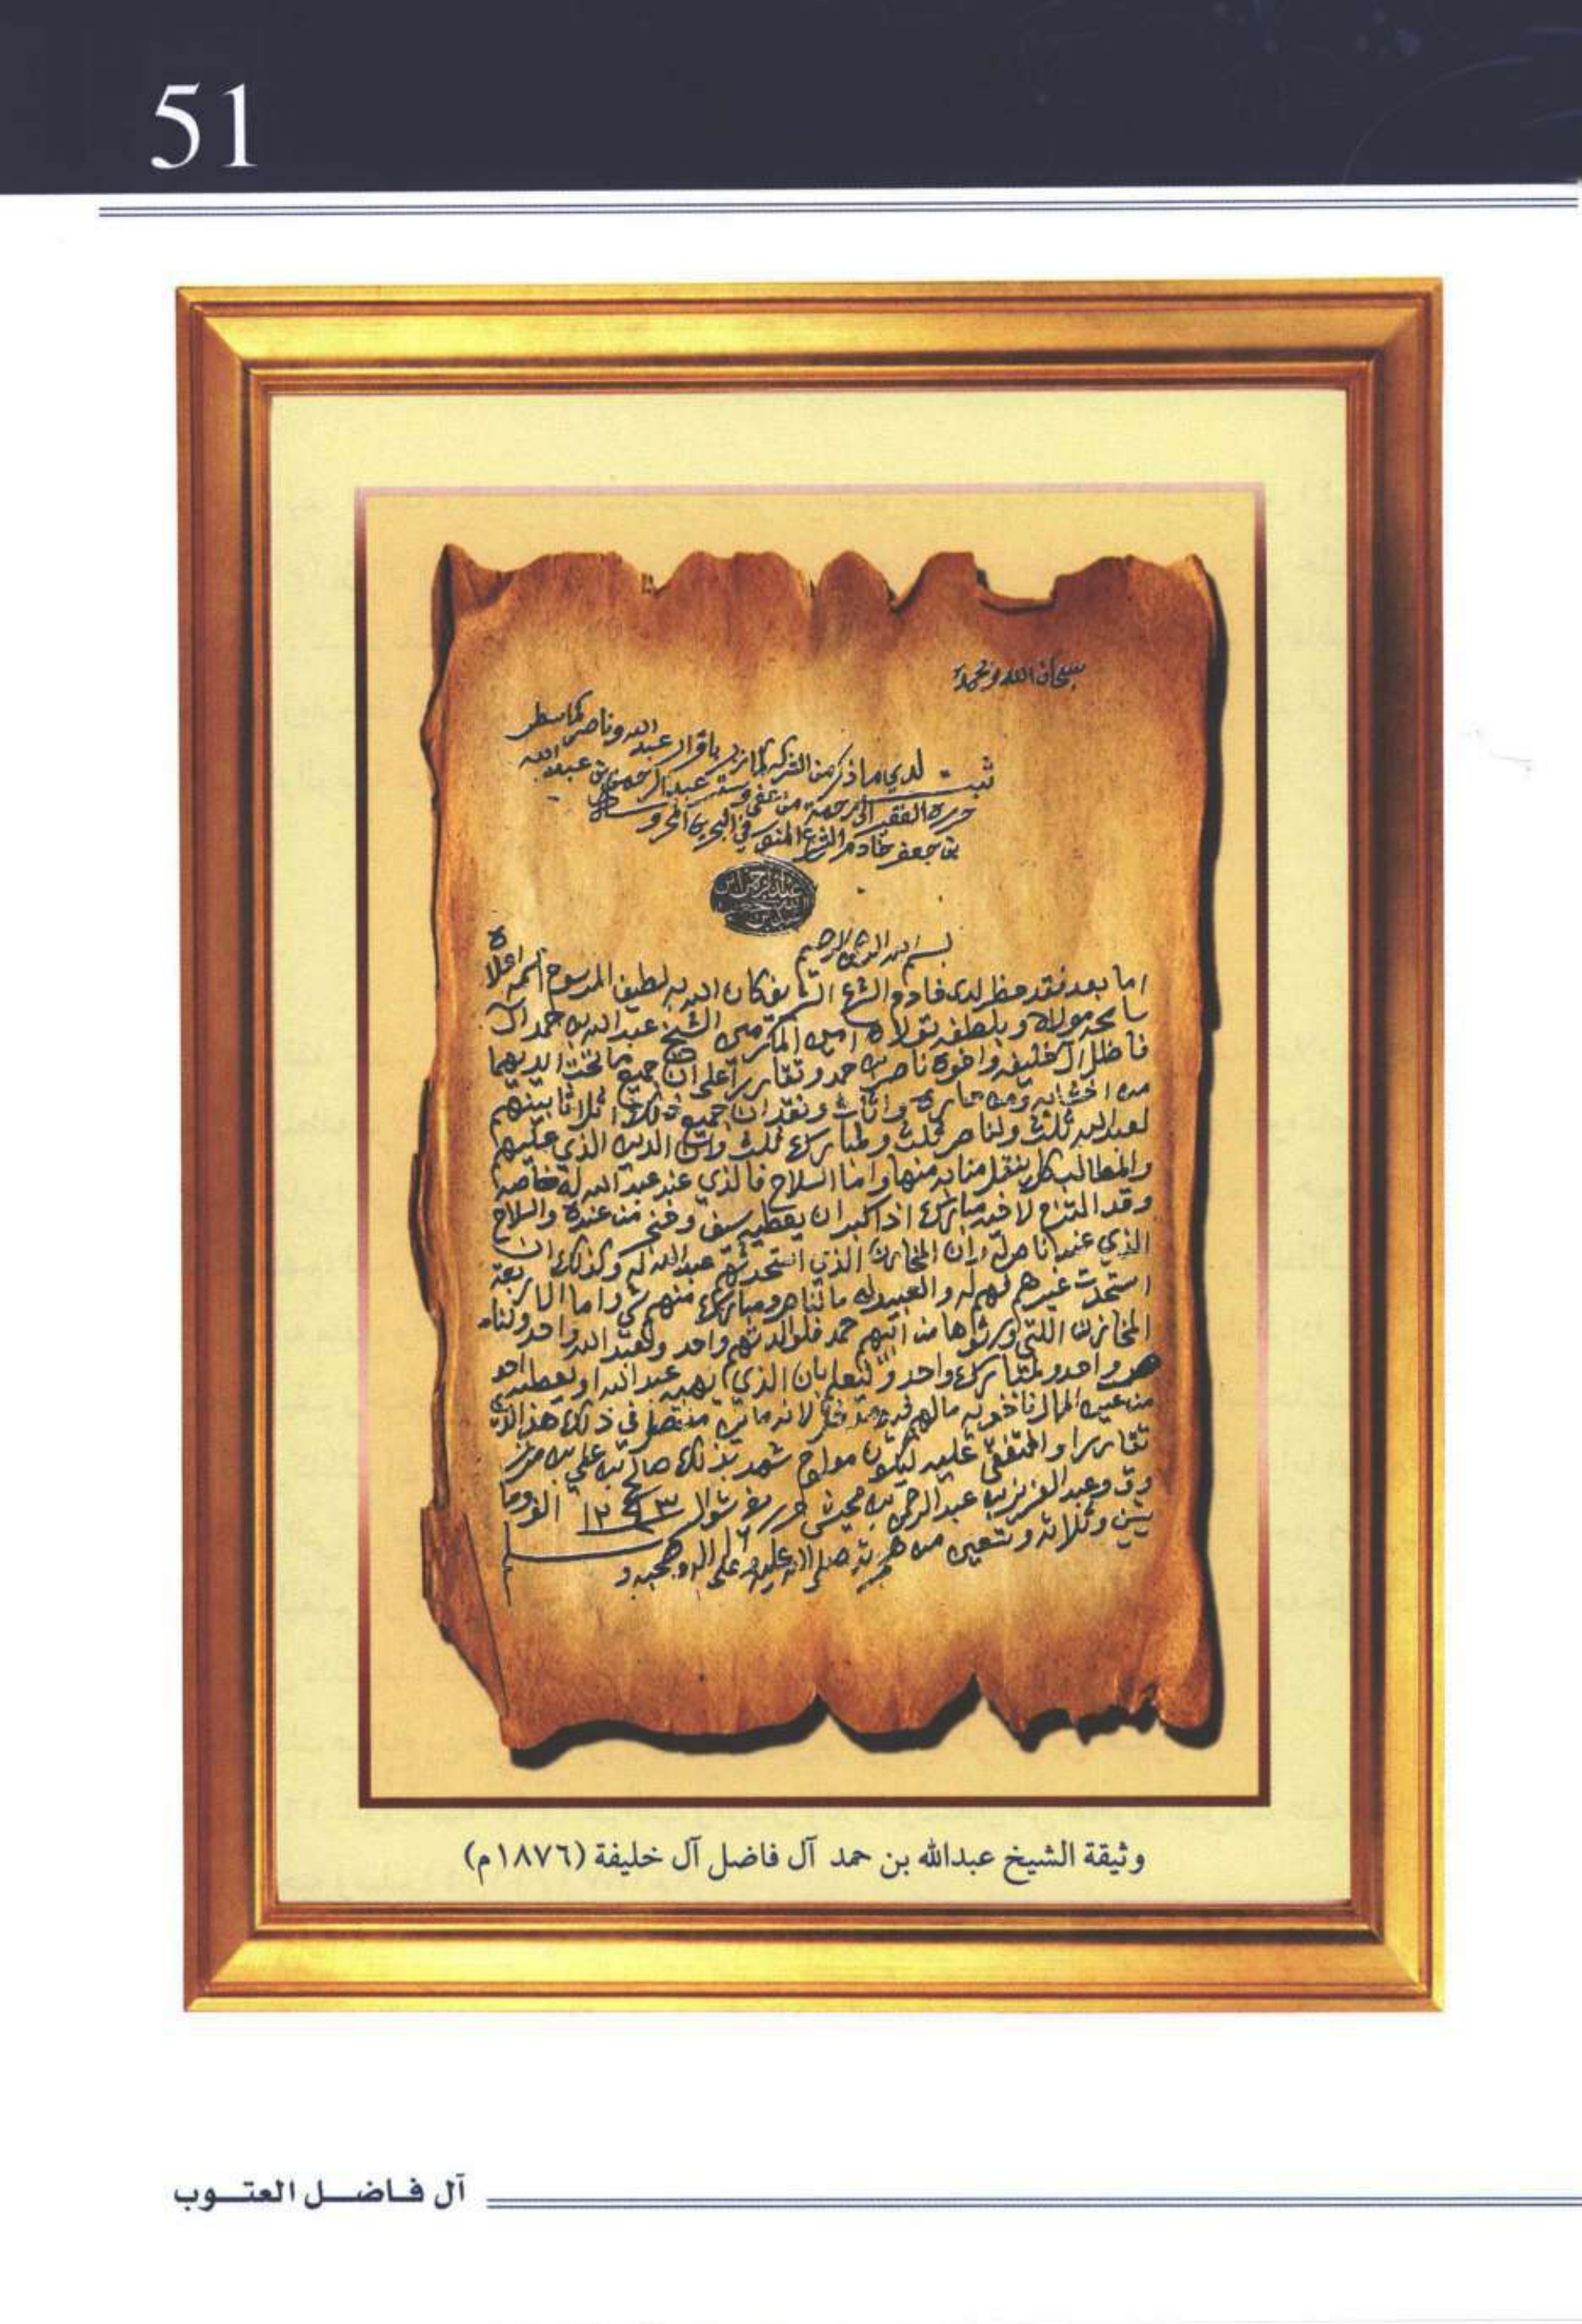 51
سبحان الله وبحمده
ثبت لدي ما ذكر من الشركة باقرار عبد الله وناصر كما سطر
حرره الفقير الى رحمة عبد الرحمن بن عبد الله
بن جعفر خادم الشرع المنصور في البحرين المحروسة
بسم الله الرحمن الرحيم
اما بعد فقد حظر لدى خادم الشرع الشريف كان الله به لطيف المرسوم اسمه اعلاه
سامحه مولاه وبلطفه تولاه امين المكرمين الشيخ عبد الله بن حمد ال
فاظل ال خليفه واخوه ناصر بن حمد وتقاررا على ان جميع ما تحت ايديهما
من اخشابه ومن واثاث ونقد ان جميع ذلك اثلاثا بينهم
لعبد الله ثلث ولناصر ثلث ومبارك ثلث وان الدين الذي عليهم
والمطالب كل منابه منها واما السلاح فالذي عند عبد الله له خاصه
وقد التزم لاخيه مبارك اذا كبر ان يعطيه سيف من عنده والسلاح
الذي عند ناصر له وان المخازن الذي استحدثهم عبد الله له وكذلك ان
استحدث غيرهم فهم له والعبيد له ما لناصر ومبارك منهم شي واما الاربعة
المخازن اللتي ورثوها من ابيهم حمد فلوالدتهم واحد ولعبد الله واحد ولنا
صر واحد ولمبارك واحد وليعلم بان الذي يهبه عبد الله او يعطيه احد
من عين المال
تقاررا والمتفق عليه شهد بذلك صالح بن علي بن مرز
وق وعبد العزيز بن عبد الرحمن بن شوال ١٢٩٣ الف وما
يتين وثلاثة وتسعين من هجرته صلى الله عليه وعلى اله وصحبه و
سلم
وثيقة الشيخ عبدالله بن حمد آل فاضل آل خليفة (١٨٧٦م)
آل فـاضـــل العتـــوب